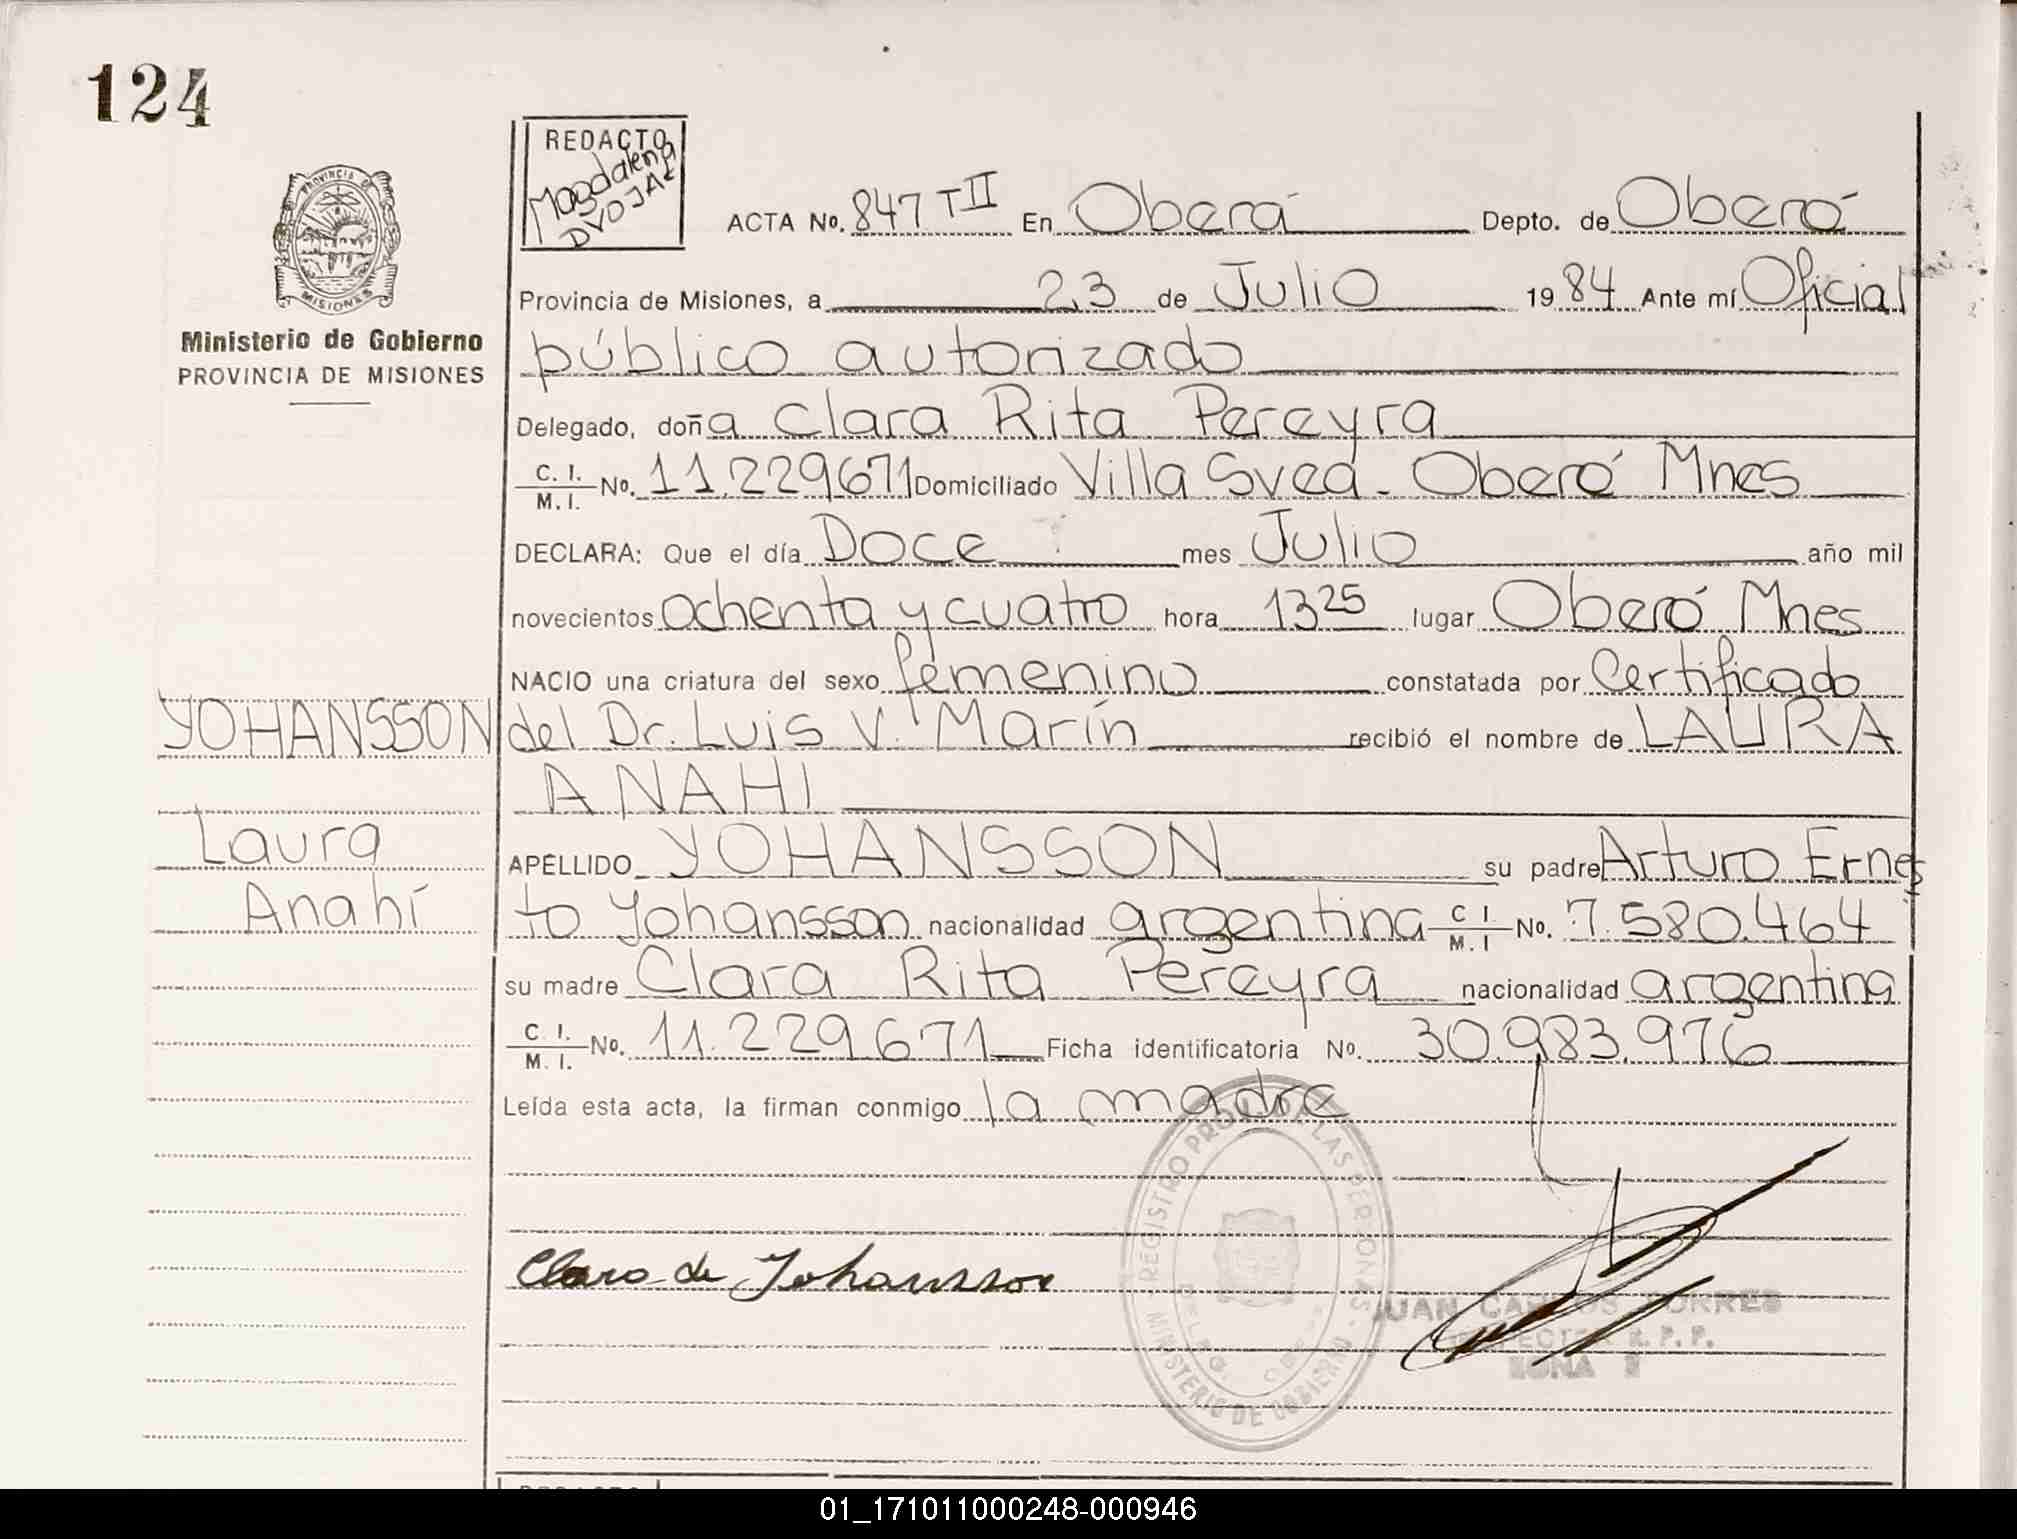 124
PROVINCIA DE
MISIONES
Ministerio de Gobierno
PROVINCIA DE MISIONES
YOHANSSON
Laura
Anahí
REDACTO
Magdalena
ACTA No. 847 T II En Oberá Depto. de Oberá
Provincia de Misiones, a 23 de Julio 1984 Ante mí Oficial
público autorizado
Delegado, doña Clara Rita Pereyra
C. I. M. I. No. 11.229671 Domiciliado Villa Svea - Oberá Mnes
DECLARA: Que el día Doce mes Julio año mil
novecientos ochenta y cuatro hora 13 25 lugar Oberá Mnes
NACIO una criatura del sexo femenino constatada por Certificado
del Dr. Luis V. Marín recibió el nombre de LAURA
ANAHI
APELLIDO YOHANSSON su padre Arturo Ernes
to Yohansson nacionalidad argentina C I. M. I No. 7.580.464
su madre Clara Rita Pereyra nacionalidad argentina
C. I. M. I. No. 11.229.671 Ficha identificatoria No. 30.983.976
Leída esta acta, la firman conmigo la madre
REGISTRO PROV. DE LAS PERSONAS
MINISTERIO DE GOBIERNO
Clara de Yohansson
JUAN CARLOS TORRES
01_171011000248-000946